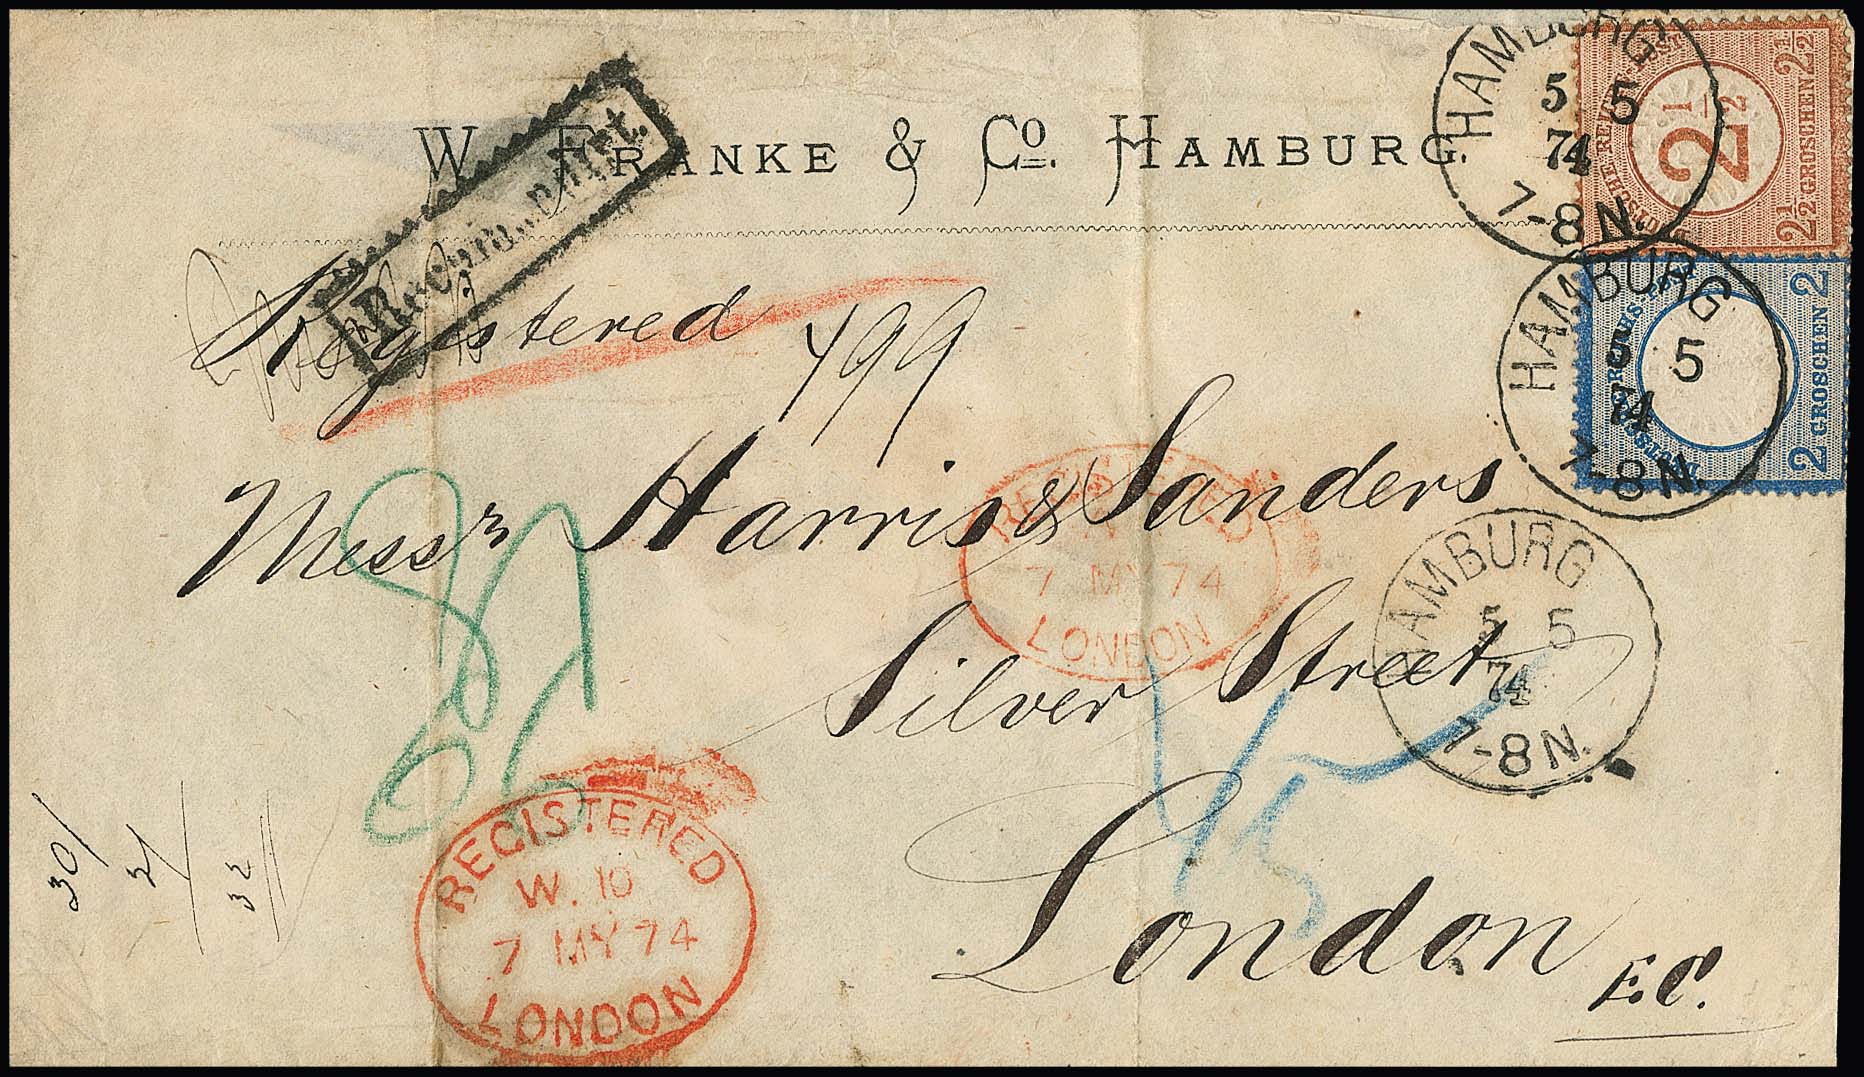 W. FRANKE & Co. HAMBURG.
Recommandirt.
Registered
499
Messrs Harris & Sanders
Silver Street
London
E.C.
HAMBURG
5 5
74
7-8 N.
2½ GROSCHEN 2½
2½
HAMBURG
5 5
74
7-8 N.
2 GROSCHEN 2
HAMBURG
5 5
74
7-8 N.
REGISTERED
7 MY 74
LONDON
REGISTERED
W. 10
7 MY 74
LONDON
30/
2/
32